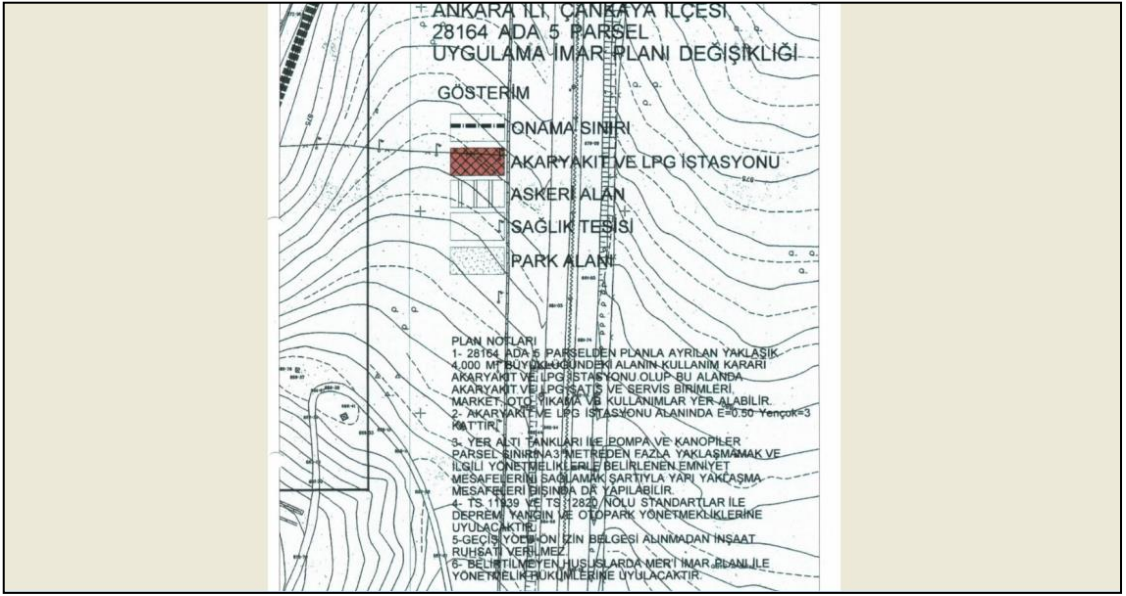 ANKARA İLİ, ÇANKAYA İLÇESİ
28164 ADA 5 PARSEL
UYGULAMA İMAR PLANI DEĞİŞİKLİĞİ
GÖSTERİM
ONAMA SINIRI
AKARYAKIT VE LPG İSTASYONU
ASKERİ ALAN
SAĞLIK TESİSİ
PARK ALANI
PLAN NOTLARI
1- 28164 ADA 5 PARSELDEN PLANLA AYRILAN YAKLAŞIK
4.000 M² BÜYÜKLÜĞÜNDEKİ ALANIN KULLANIM KARARI
AKARYAKIT VE LPG İSTASYONU OLUP BU ALANDA
AKARYAKIT VE LPG SATIŞ VE SERVİS BİRİMLERİ,
MARKET, OTO YIKAMA VB KULLANIMLAR YER ALABİLİR.
2- AKARYAKIT VE LPG İSTASYONU ALANINDA E=0.50 Yençok=3
KAT'TIR.
3- YER ALTI TANKLARI İLE POMPA VE KANOPİLER
PARSEL SINIRINA 3 METREDEN FAZLA YAKLAŞMAMAK VE
İLGİLİ YÖNETMELİKLERLE BELİRLENEN EMNİYET
MESAFELERİNİ SAĞLAMAK ŞARTIYLA YAPI YAKLAŞMA
MESAFELERİ DIŞINDA DA YAPILABİLİR.
4- TS 11939 VE TS 12820 NOLU STANDARTLAR İLE
DEPREM, YANGIN VE OTOPARK YÖNETMEKLİKLERİNE
UYULACAKTIR.
5-GEÇİŞ YOLU ÖN İZİN BELGESİ ALINMADAN İNŞAAT
RUHSATI VERİLMEZ.
6- BELİRTİLMEYEN HUSUSLARDA MER'İ İMAR PLANI İLE
YÖNETMELİK HÜKÜMLERİNE UYULACAKTIR.